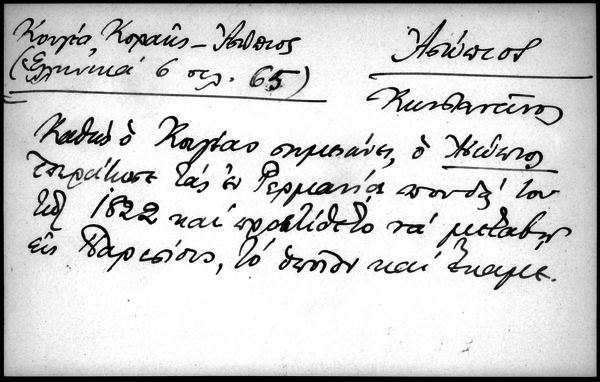 Κουγέα, Κοραῆς – Ἀσώπιος
(Ἑλληνικά 6 σελ. 65)
Ἀσώπιος
Κωνσταντῖνος
Καθώς ὁ Κουγέας σημειώνει, ὁ Ἀσώπιος
ἐπεράτωσε τάς ἐν Γερμανία σπουδάς του
τῷ 1822 καί προετίθετο νά μεταβῇ
εἰς Παρισίους, τό ὁποῖον καί ἔκαμε.